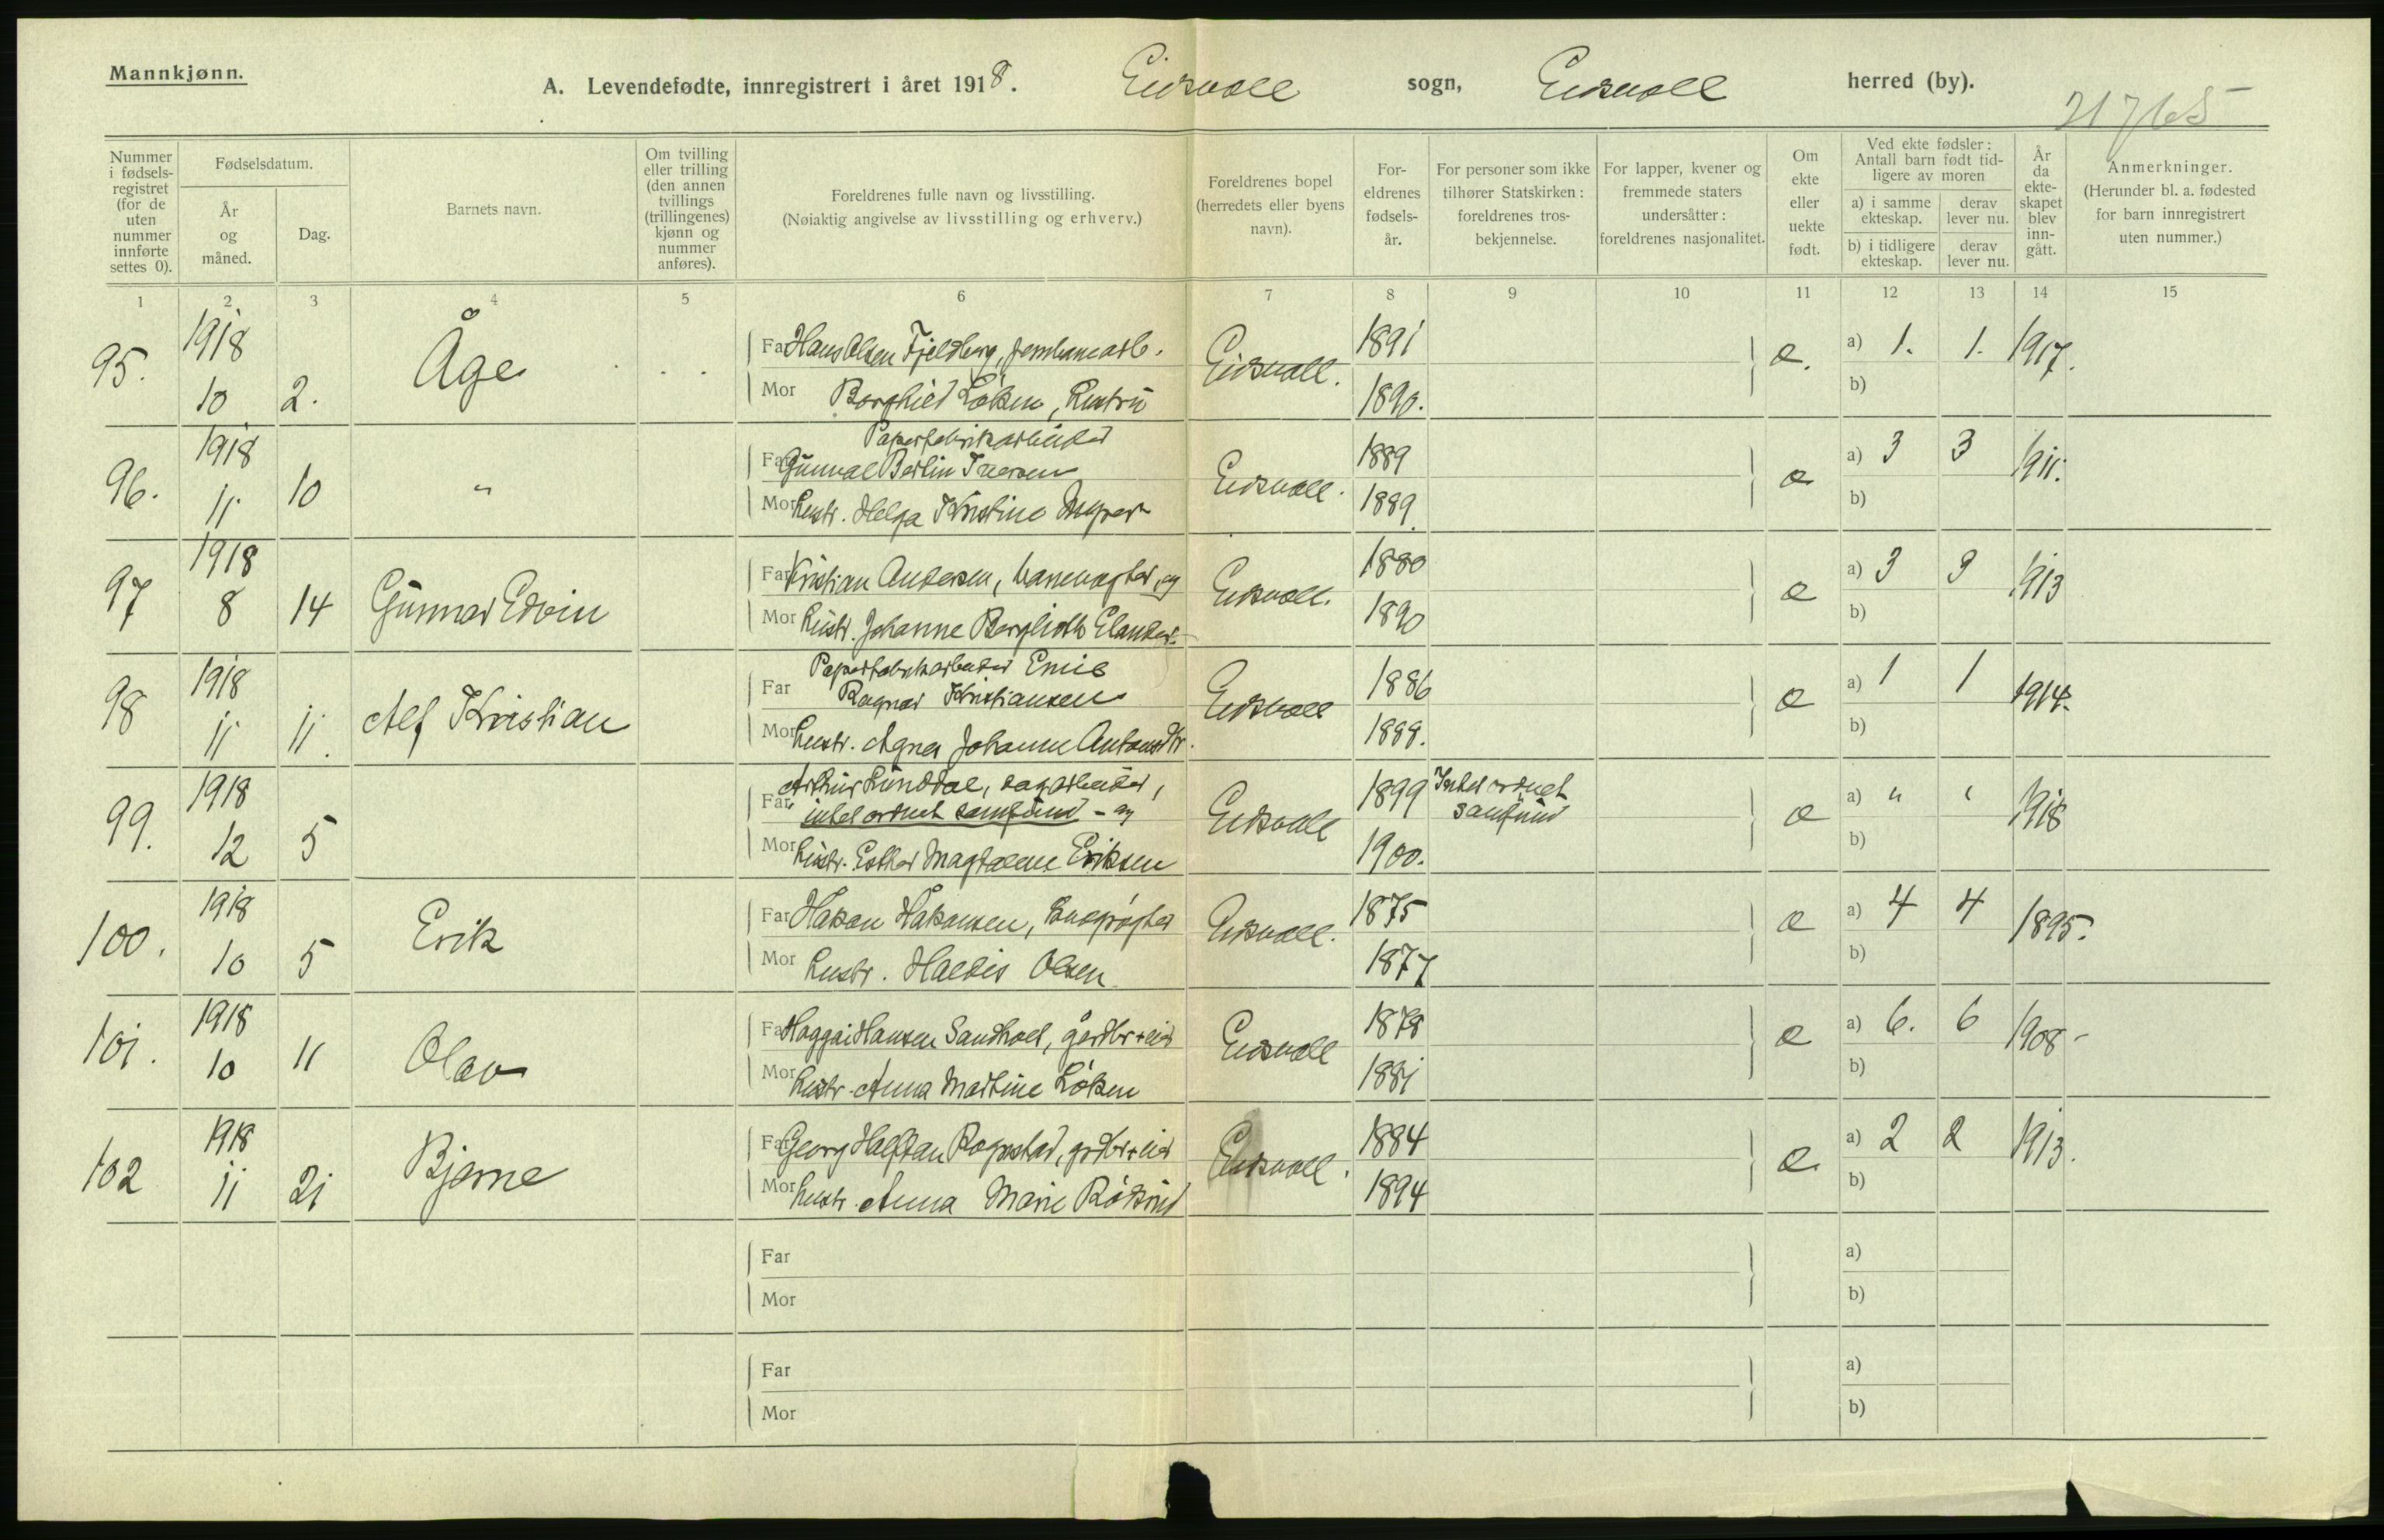 Mannkjønn.
A. Levendefødte, innregistrert i året 1918. Eidsvoll sogn, Eidsvoll herred (by).
21765
Nummer i fødsels-registret (for de uten nummer innførte settes 0).
Fødselsdatum.
År og måned.
Dag.
Barnets navn.
Om tvilling eller trilling (den annen tvillings (trillingenes) kjønn og nummer anføres).
Foreldrenes fulle navn og livsstilling.
(Nøiaktig angivelse av livsstilling og erhverv.)
Foreldrenes bopel (herredets eller byens navn).
For-eldrenes fødsels-år.
For personer som ikke tilhører Statskirken: foreldrenes tros-bekjennelse.
For lapper, kvener og fremmede staters undersåtter: foreldrenes nasjonalitet.
Om ekte eller uekte født.
Ved ekte fødsler: Antall barn født tid-ligere av moren
a) i samme ekteskap.
derav lever nu.
b) i tidligere ekteskap.
derav lever nu.
År da ekte-skapet blev inn-gått.
Anmerkninger.
(Herunder bl. a. fødested for barn innregistrert uten nummer.)
1 2 3 4 5 6 7 8 9 10 11 12 13 14 15
95. 1918 10 2. Åge
Far Hans Olsen Fjeldberg, jernbanearb. Eidsvoll. 1891 e. a) 1. 1. 1917.
Mor Borghild Løken, hustru 1890. b)
96. 1918 11 10 "
Paperfabrikarbeider
Far Gunval Berlin Iversen Eidsvoll. 1889 e a) 3 3 1911.
Mor hustr. Helga Kristine 1889. b)
97 1918 8 14 Gunnar Edvin
Far Kristian Andersen, banevogter, og Eidsvoll. 1880 e a) 3 3 1913
Mor hustr. Johanne Berglioth 1890 b)
98 1918 11 11. Alf Kristian
Paperfabrikarbeider Emil
Far Ragnar Kristiansen Eidsvoll 1886 e a) 1 1 1914.
Mor hustr. Agnes Johanne Antonsdtr. 1888. b)
99. 1918 12 5
Arthur Lunddal, sagarbeider,
Far intet ordnet samfund - og Eidsvoll 1899 Intet ordnet samfund e a) " " 1918
Mor hustr. Esther Magdalene Eriksen 1900. b)
100. 1918 10 5 Erik
Far Hakon Hakonsen, Eidsvoll. 1875 e a) 4 4 1895.
Mor hustr. Haldis Olsen 1877 b)
101. 1918 10 11 Olav
Far Haggai Hansen Sandhol, gårdbr + eier Eidsvoll 1878 e a) 6. 6 1908-
Mor hustr. Anna Martine Løken 1881 b)
102 1918 11 21 Bjarne
Far Georg Halfdan Rognstad, grdbr + eier Eidsvoll. 1884 e. a) 2 2 1913.
Mor hustr. Anna Marie Røkrud 1894 b)
Far a)
Mor b)
Far a)
Mor b)